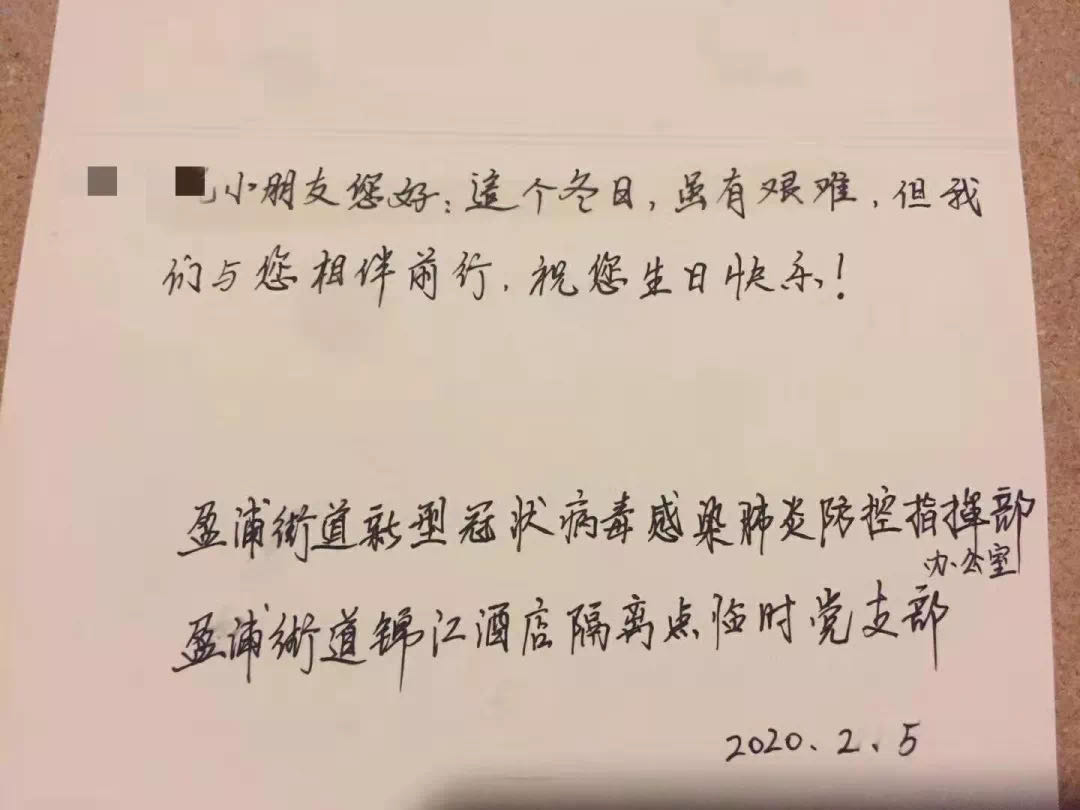 小朋友您好：這个冬日，虽有艰难，但我
们与您相伴前行，祝您生日快乐！
盈浦街道新型冠状病毒感染肺炎防控指挥部
办公室
盈浦街道锦江酒店隔离点临时党支部
2020.2.5